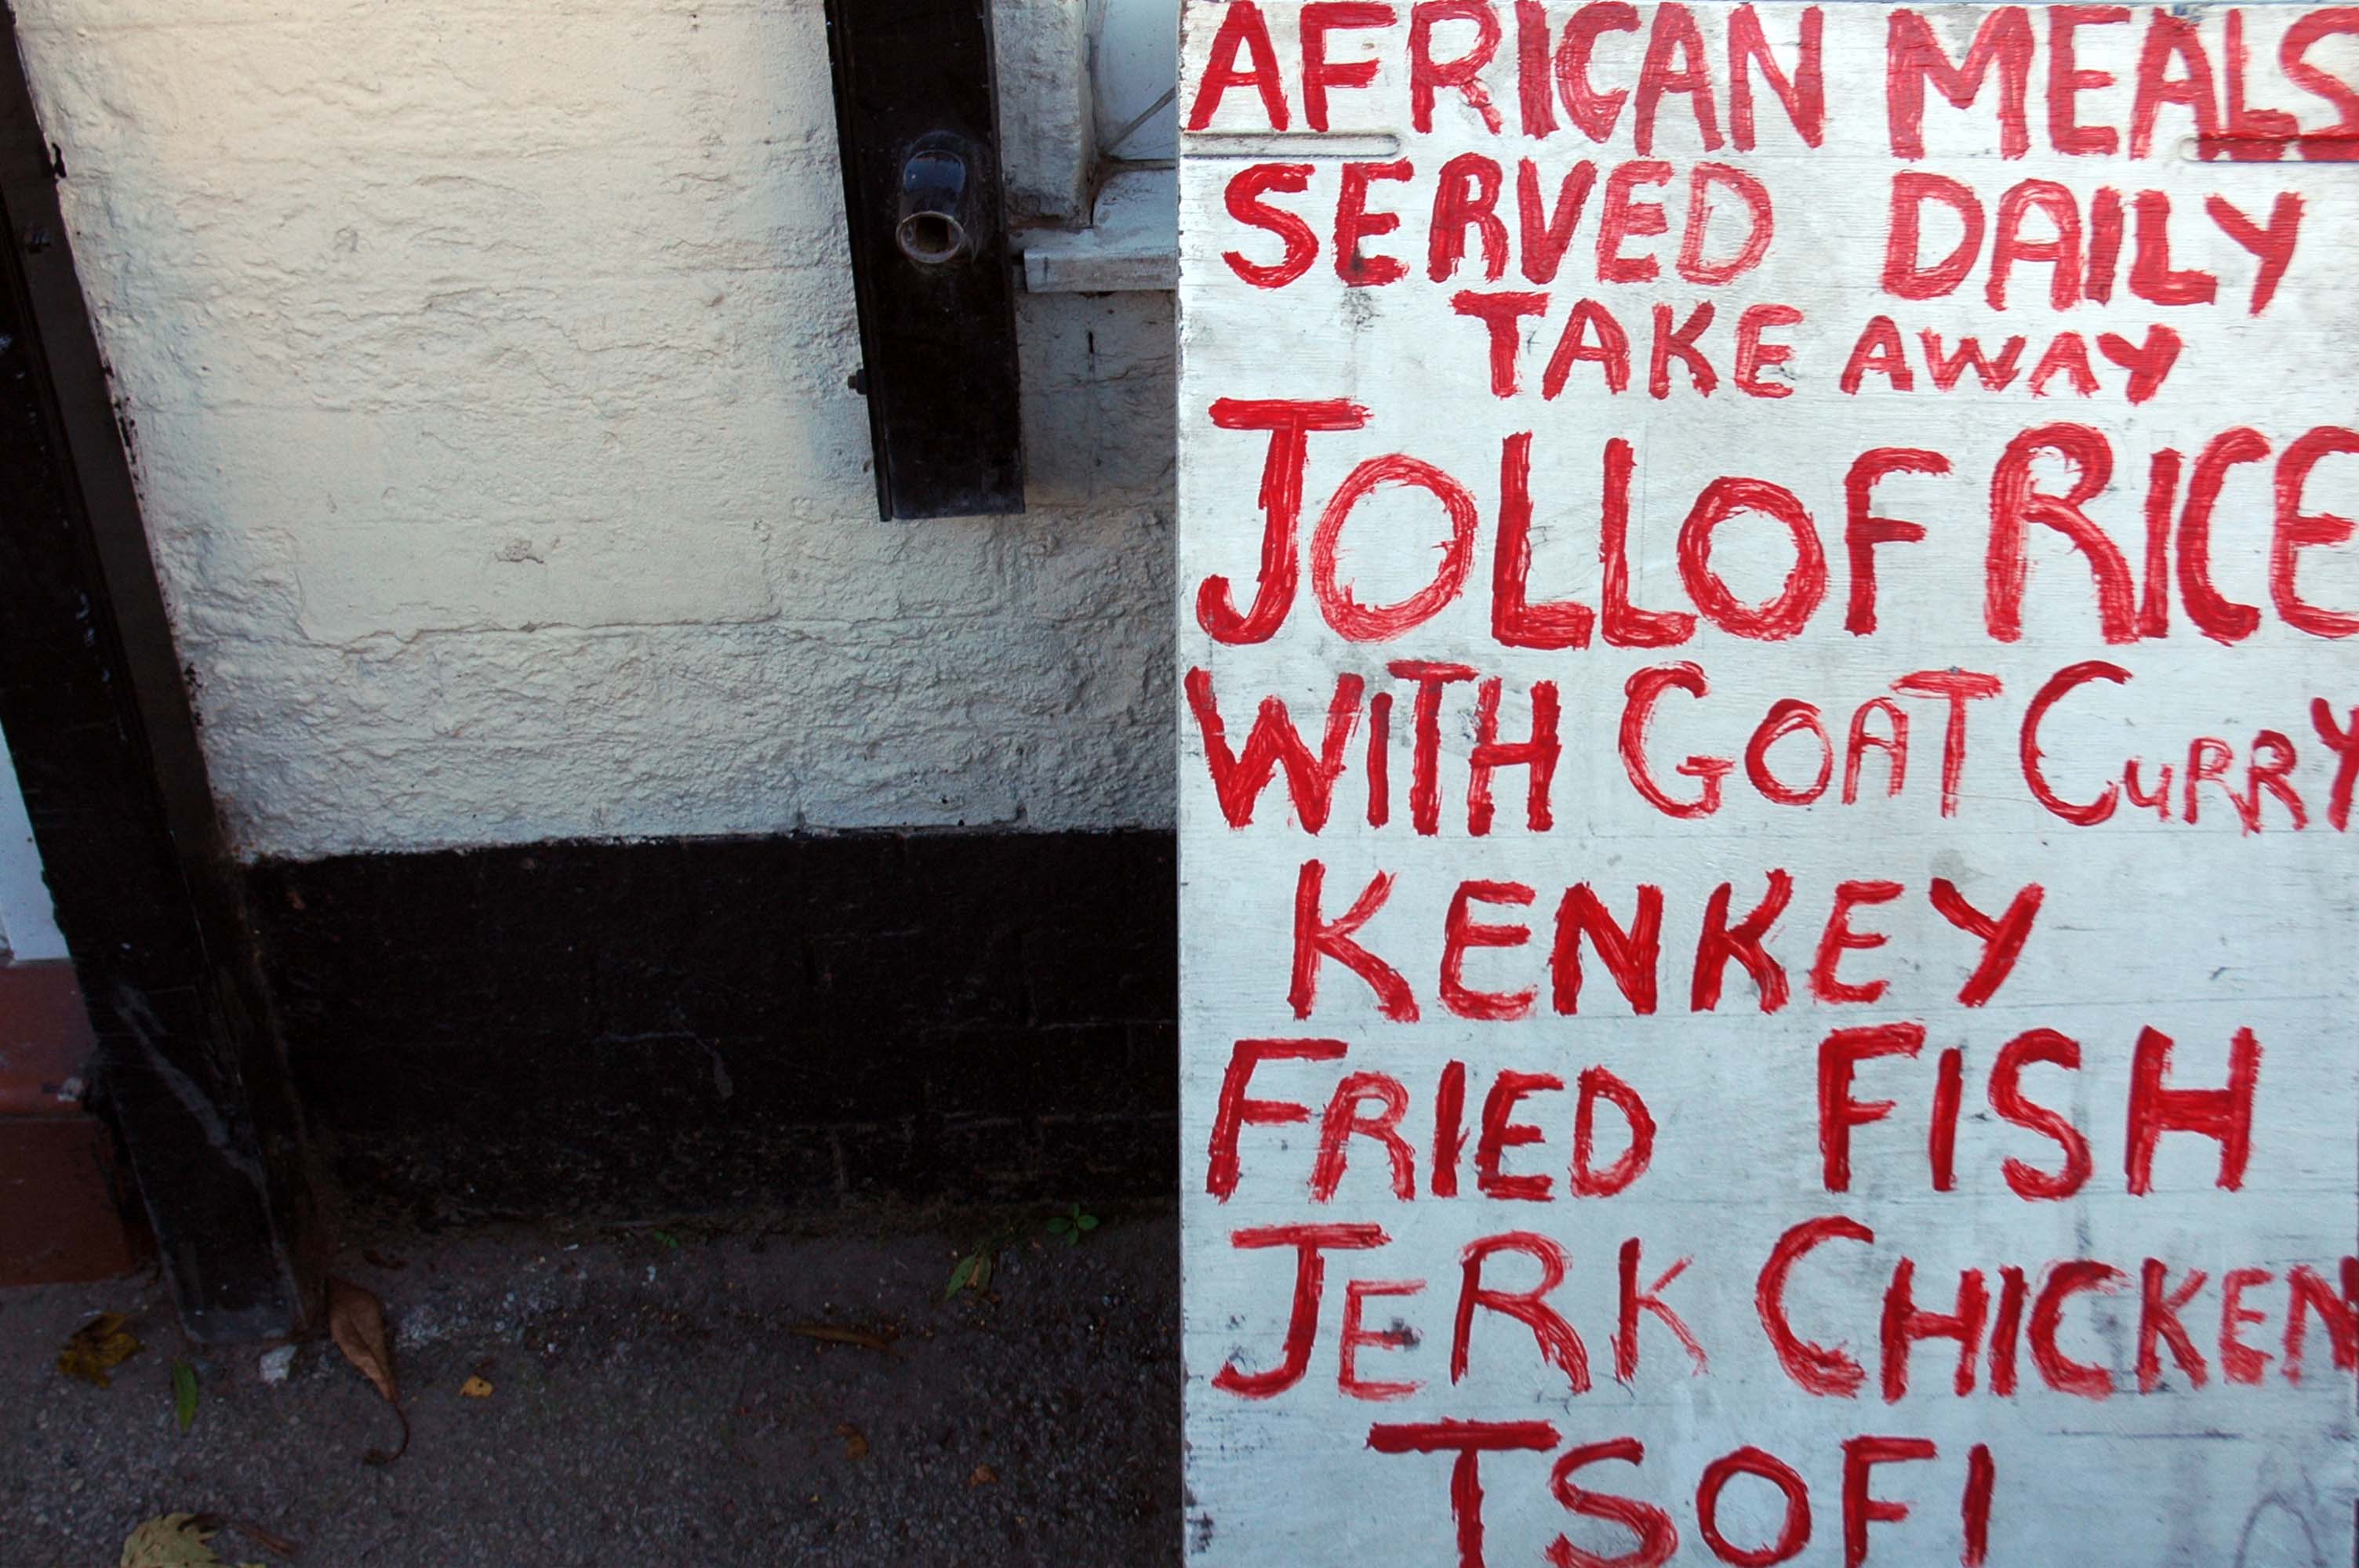 AFRICAN MEALS
SERVED DAILY
TAKE AWAY
JOLLOF RICE
WITH GOAT CURRY
KENKEY
FRIED FISH
JERK CHICKEN
TSOFI